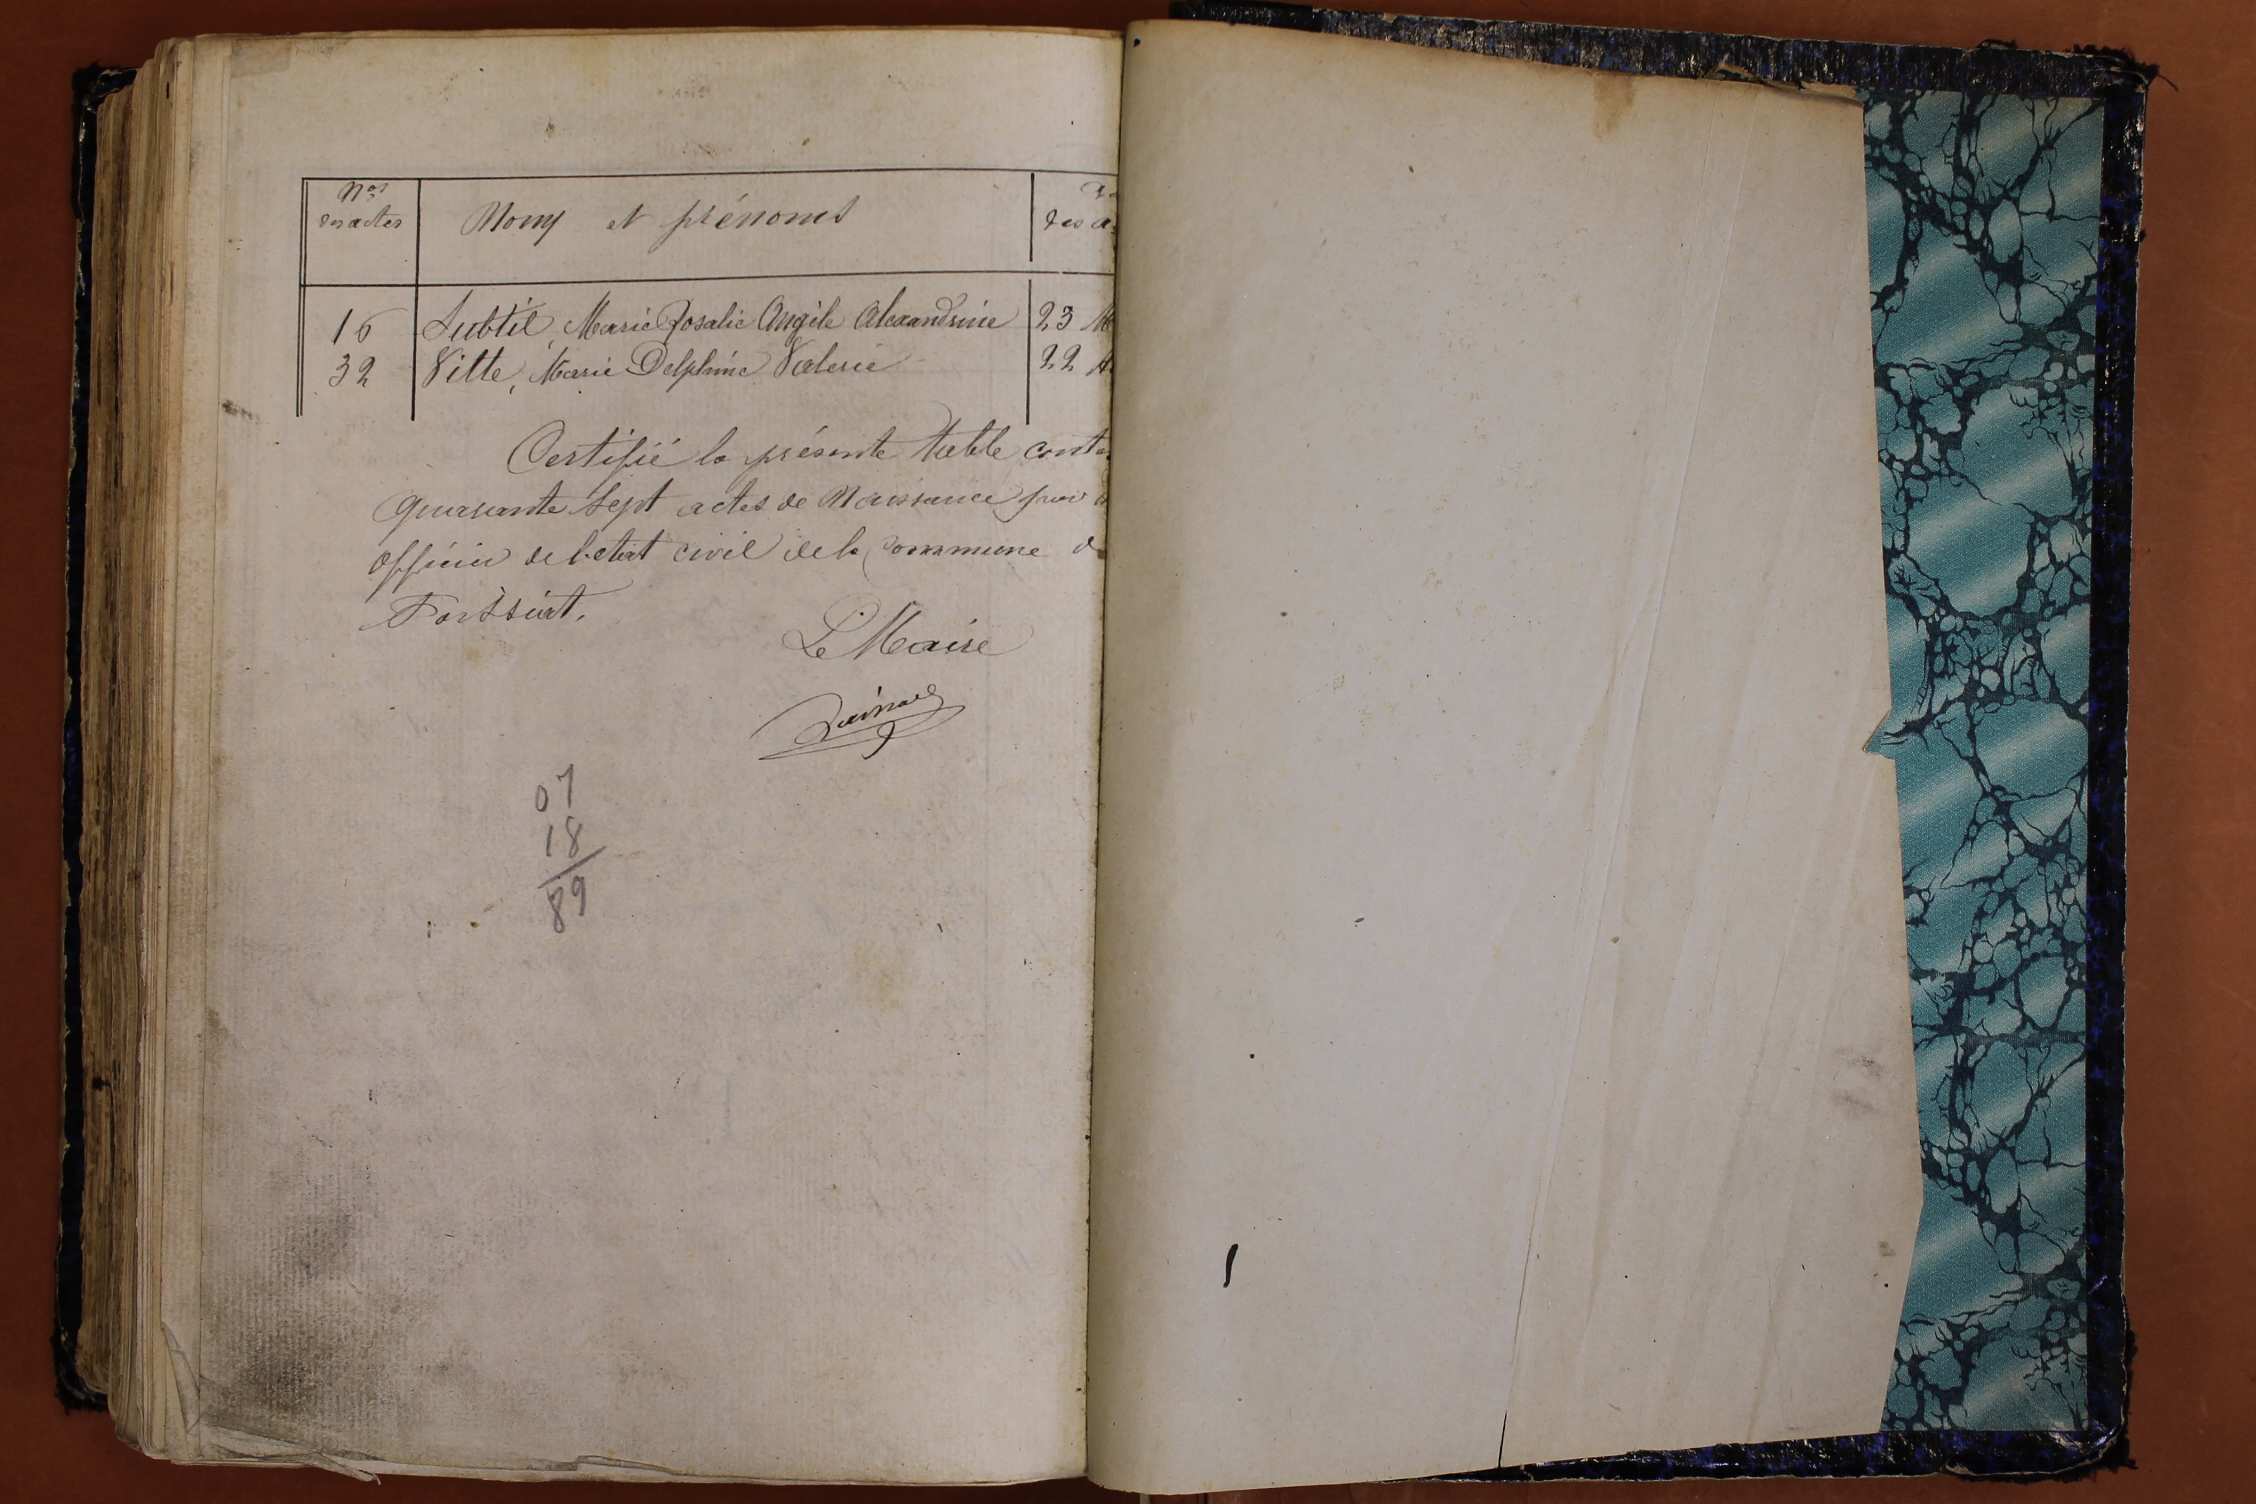 Nos des actes Noms et prénoms des a
16 Subtil, Marie Rosalie Angèle Alexandrine 23 M
32 Vitte, Marie Delphine Valerie 22 A
Certifié la présente table conte
quarante sept actes de Naissance par
officier de l'etat civil de la commune d
Le Maire
07
18
89